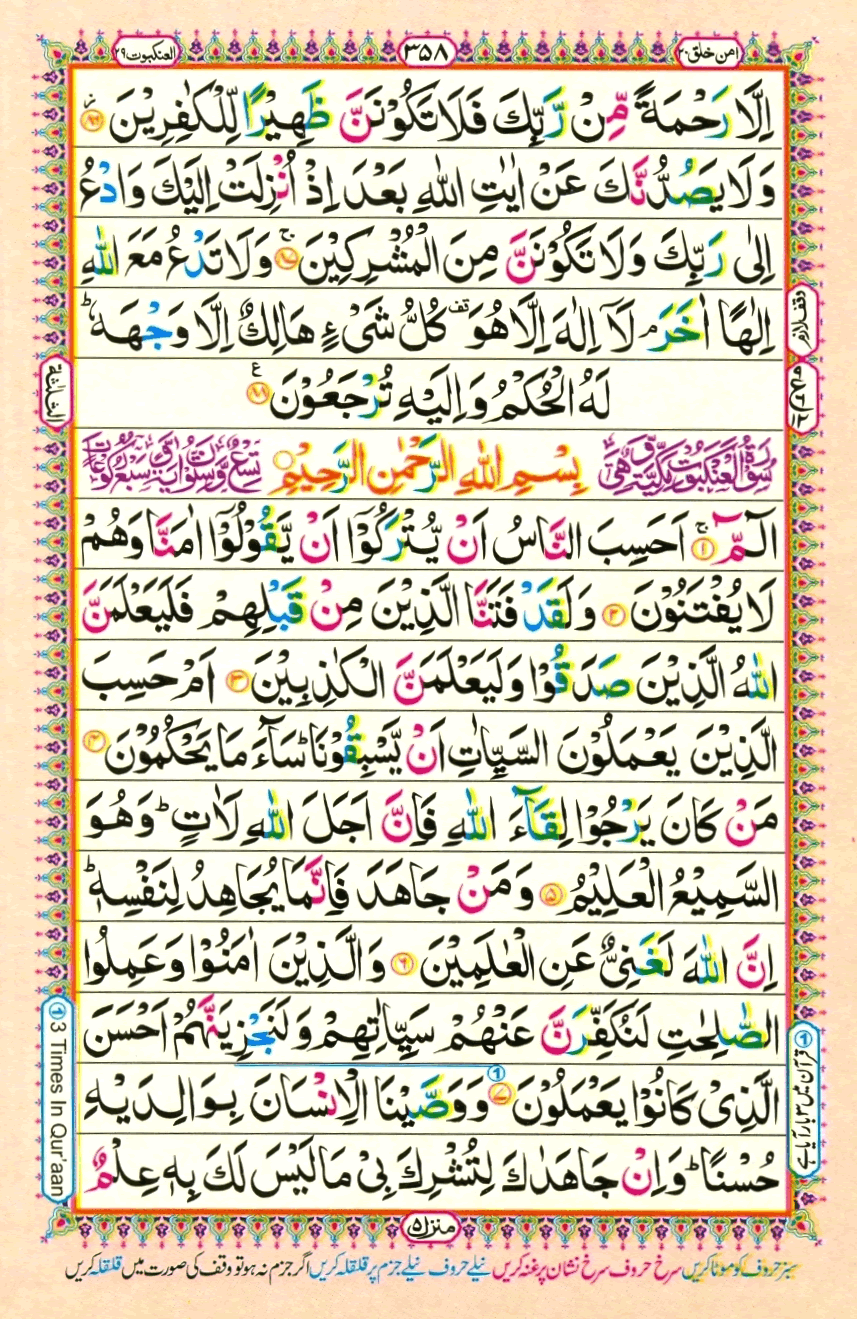 امن خلق ۲۰
۳۵۸
العنكبوت ۲۹
اِلَّا رَحْمَةً مِّنْ رَّبِّكَ فَلَا تَكُوْنَنَّ ظَهِيْرًا لِّلْكٰفِرِيْنَ ۸۶
وَلَا يَصُدُّنَّكَ عَنْ اٰيٰتِ اللّٰهِ بَعْدَ اِذْ اُنْزِلَتْ اِلَيْكَ وَادْعُ
اِلٰى رَبِّكَ وَلَا تَكُوْنَنَّ مِنَ الْمُشْرِكِيْنَ ۚ۸۷ وَلَا تَدْعُ مَعَ اللّٰهِ
اِلٰهًا اٰخَرَ ۘ لَاۤ اِلٰهَ اِلَّا هُوَ قف كُلُّ شَيْءٍ هَالِكٌ اِلَّا وَجْهَهٗ ؕ
لَهُ الْحُكْمُ وَاِلَيْهِ تُرْجَعُوْنَ ۸۸ ع
وقف لازم
الثلثة
سُوْرَةُ الْعَنْكَبُوْتِ مَكِّيَّةٌ وَّهِيَ
بِسْمِ اللّٰهِ الرَّحْمٰنِ الرَّحِيْمِ
تِسْعٌ وَّسِتُّوْنَ اٰيَةً وَّسَبْعُ رُكُوْعَاتٍ
الٓمّٓ ۚ۱ اَحَسِبَ النَّاسُ اَنْ يُّتْرَكُوْۤا اَنْ يَّقُوْلُوْۤا اٰمَنَّا وَهُمْ
لَا يُفْتَنُوْنَ ۲ وَلَقَدْ فَتَنَّا الَّذِيْنَ مِنْ قَبْلِهِمْ فَلَيَعْلَمَنَّ
اللّٰهُ الَّذِيْنَ صَدَقُوْا وَلَيَعْلَمَنَّ الْكٰذِبِيْنَ ۳ اَمْ حَسِبَ
الَّذِيْنَ يَعْمَلُوْنَ السَّيِّاٰتِ اَنْ يَّسْبِقُوْنَا ؕ سَآءَ مَا يَحْكُمُوْنَ ۴
مَنْ كَانَ يَرْجُوْا لِقَآءَ اللّٰهِ فَاِنَّ اَجَلَ اللّٰهِ لَاٰتٍ ؕ وَهُوَ
السَّمِيْعُ الْعَلِيْمُ ۵ وَمَنْ جَاهَدَ فَاِنَّمَا يُجَاهِدُ لِنَفْسِهٖ ؕ
اِنَّ اللّٰهَ لَغَنِيٌّ عَنِ الْعٰلَمِيْنَ ۶ وَالَّذِيْنَ اٰمَنُوْا وَعَمِلُوا
الصّٰلِحٰتِ لَنُكَفِّرَنَّ عَنْهُمْ سَيِّاٰتِهِمْ وَلَنَجْزِيَنَّهُمْ اَحْسَنَ
الَّذِيْ كَانُوْا يَعْمَلُوْنَ ۷ وَوَصَّيْنَا الْاِنْسَانَ بِوَالِدَيْهِ
حُسْنًا ؕ وَاِنْ جَاهَدٰكَ لِتُشْرِكَ بِيْ مَا لَيْسَ لَكَ بِهٖ عِلْمٌ
① قرآن میں ۳ بار آیا ہے
① 3 Times In Qur'aan
منزل ۵
سبز حروف کو موٹا کریں سرخ حروف سرخ نشان پر غنہ کریں نیلے حروف نیلے جزم پر قلقلہ کریں اگر جزم نہ ہو تو وقف کی صورت میں قلقلہ کریں